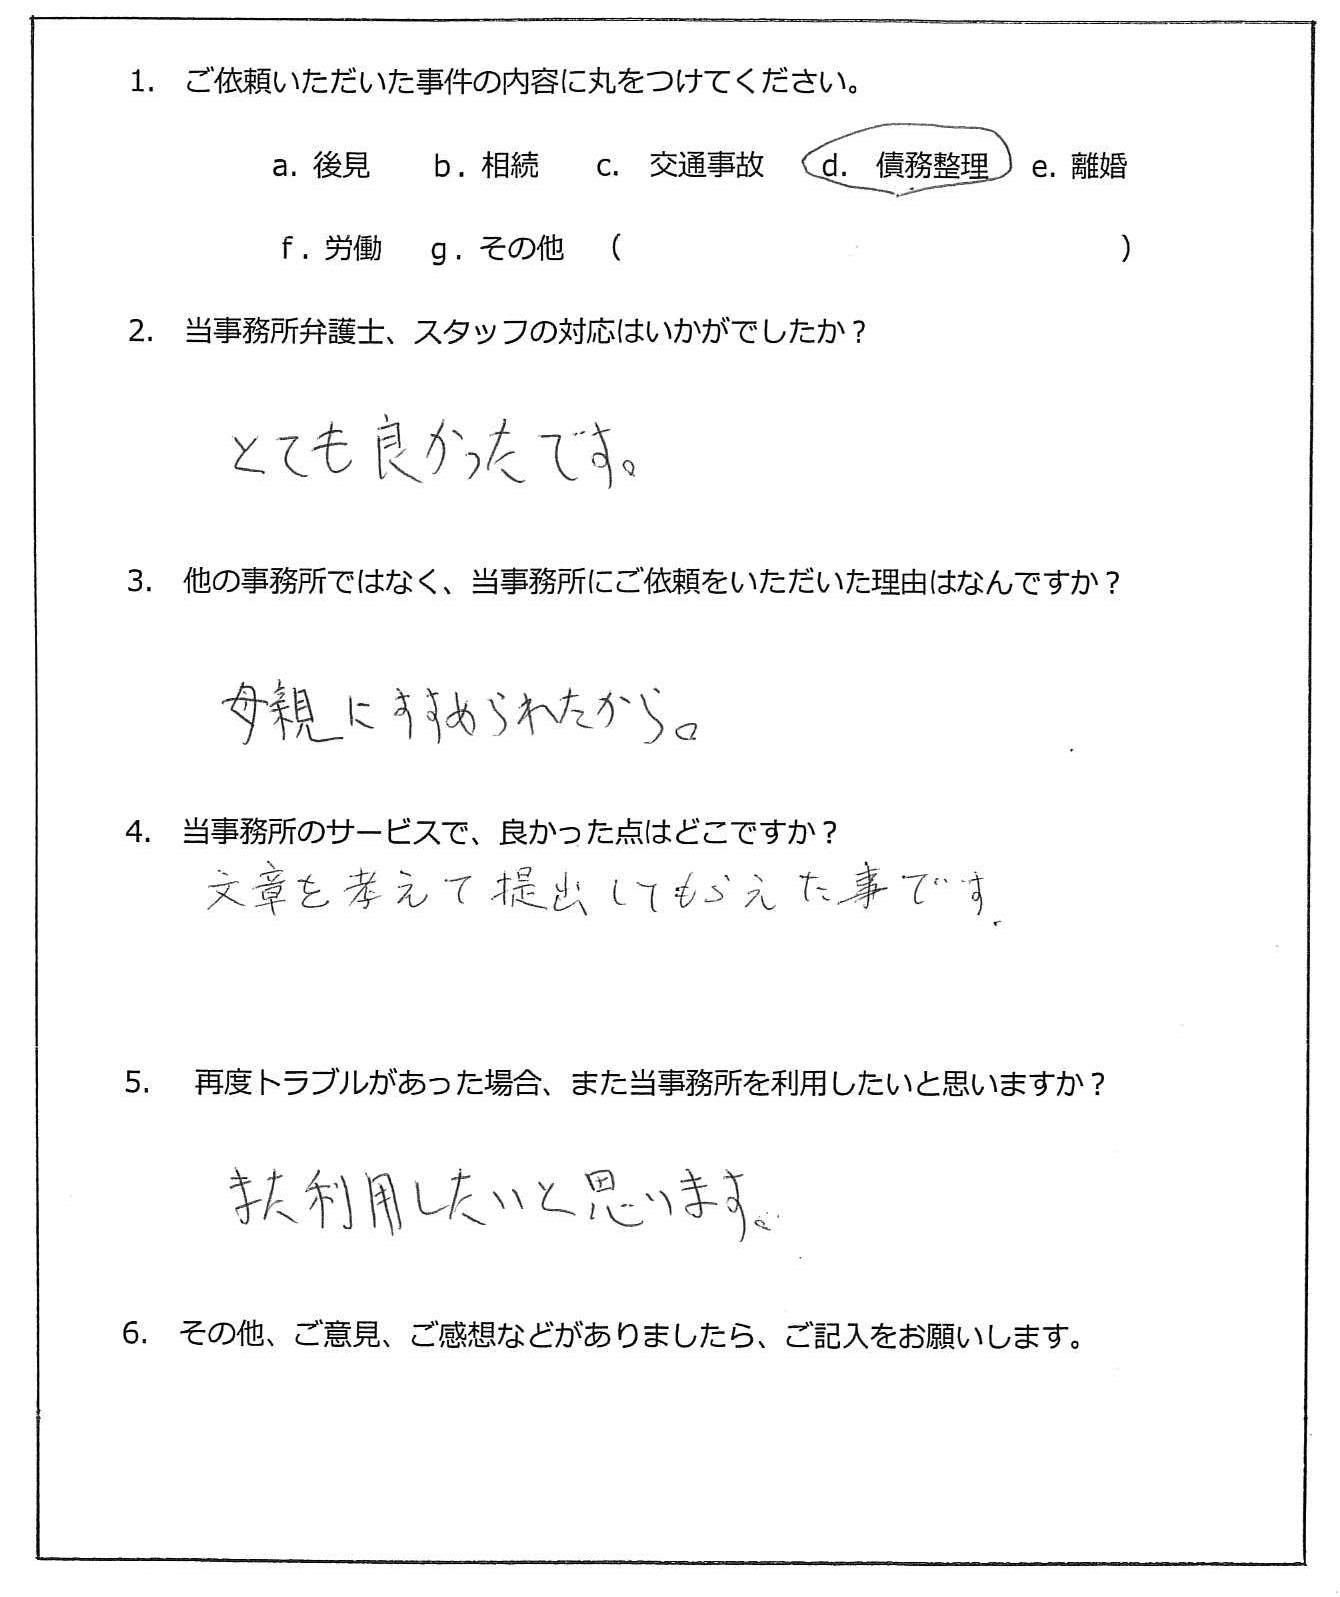 1. ご依頼いただいた事件の内容に丸をつけてください。
a. 後見 b. 相続 c. 交通事故 d. 債務整理 e. 離婚
f. 労働 g. その他 ( )
2. 当事務所弁護士、スタッフの対応はいかがでしたか？
とても良かったです。
3. 他の事務所ではなく、当事務所にご依頼をいただいた理由はなんですか？
母親にすすめられたから。
4. 当事務所のサービスで、良かった点はどこですか？
文章を考えて提出してもらえた事です.
5. 再度トラブルがあった場合、また当事務所を利用したいと思いますか？
また利用したいと思います。
6. その他、ご意見、ご感想などがありましたら、ご記入をお願いします。